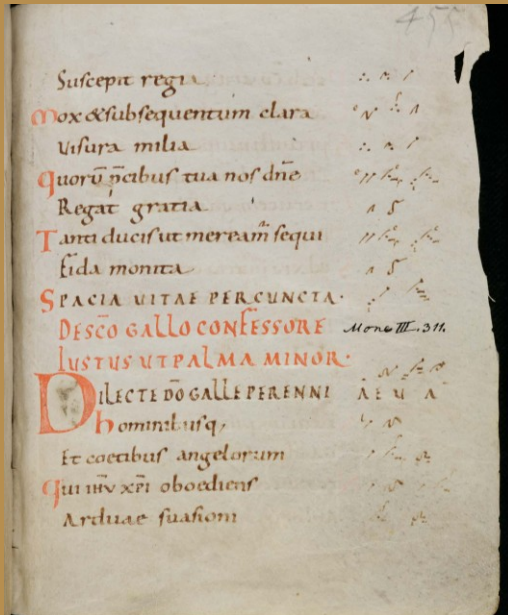 455
Suscepit regia
Mox & subsequentum clara
Visura milia
Quorū p̄cibus tua nos dn̄e
Regat gratia
Tanti ducis ut meream̄ sequi
Fida monita
SPACIA VITAE PER CUNCTA.
DE SC̄O GALLO CONFESSORE Mone III. 311.
IUSTUS UT PALMA MINOR.
DILECTE DŌ GALLE PERENNI A E U A
hominibusq;
Et coetibus angelorum
Qui ih̄u xp̄i oboediens
Arduae suasioni